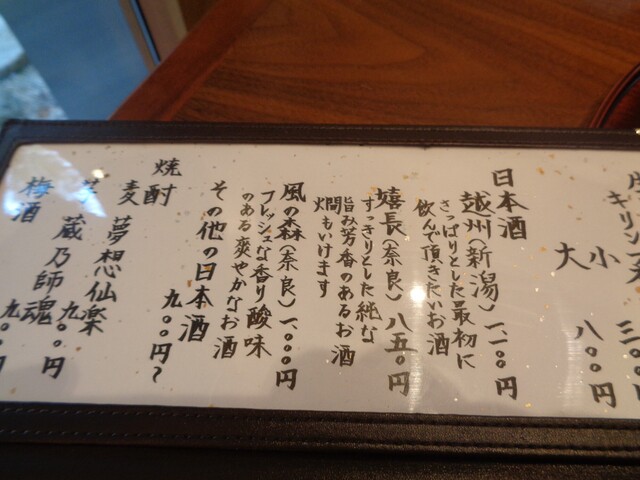 キリン
小 八〇〇円
大
日本酒
越州(新潟) 一、一〇〇円
さっぱりとした最初に
飲んで頂きたいお酒
嬉長(奈良) 八五〇円
すっきりとした純な
旨み芳香のあるお酒
燗もいけます
風の森(奈良) 一、〇〇〇円
フレッシュな香り酸味
のある爽やかなお酒
その他の日本酒
九〇〇円〜
焼酎
麦 夢想仙楽
九〇〇円
蔵乃師魂
九〇〇円
梅酒